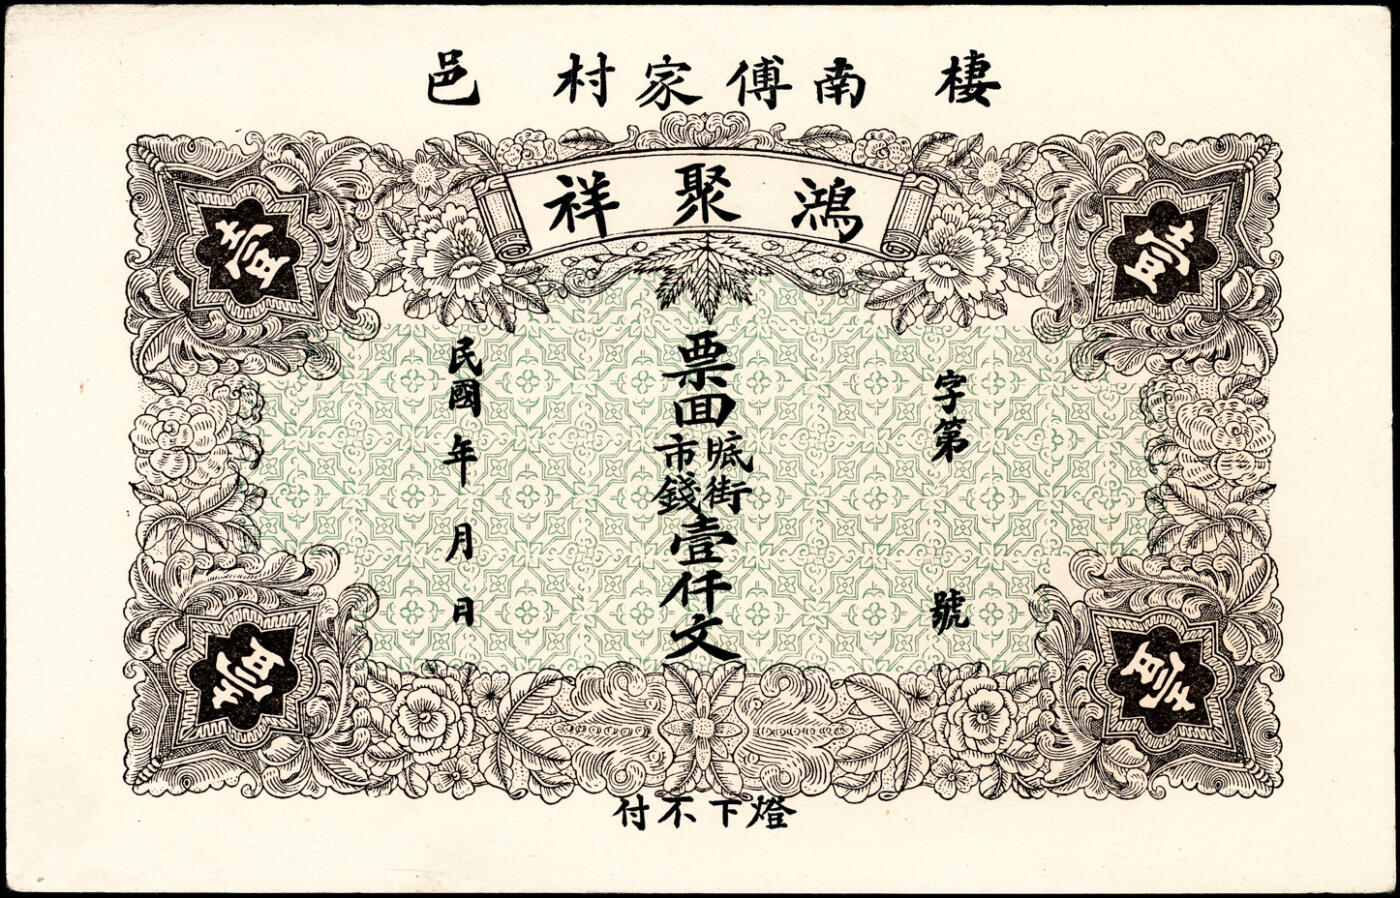 棲 南傅家村 邑
鴻聚祥
壹
壹
字第 號
票囬
底街
市錢
壹仟文
民國 年 月 日
壹
壹
燈下不付